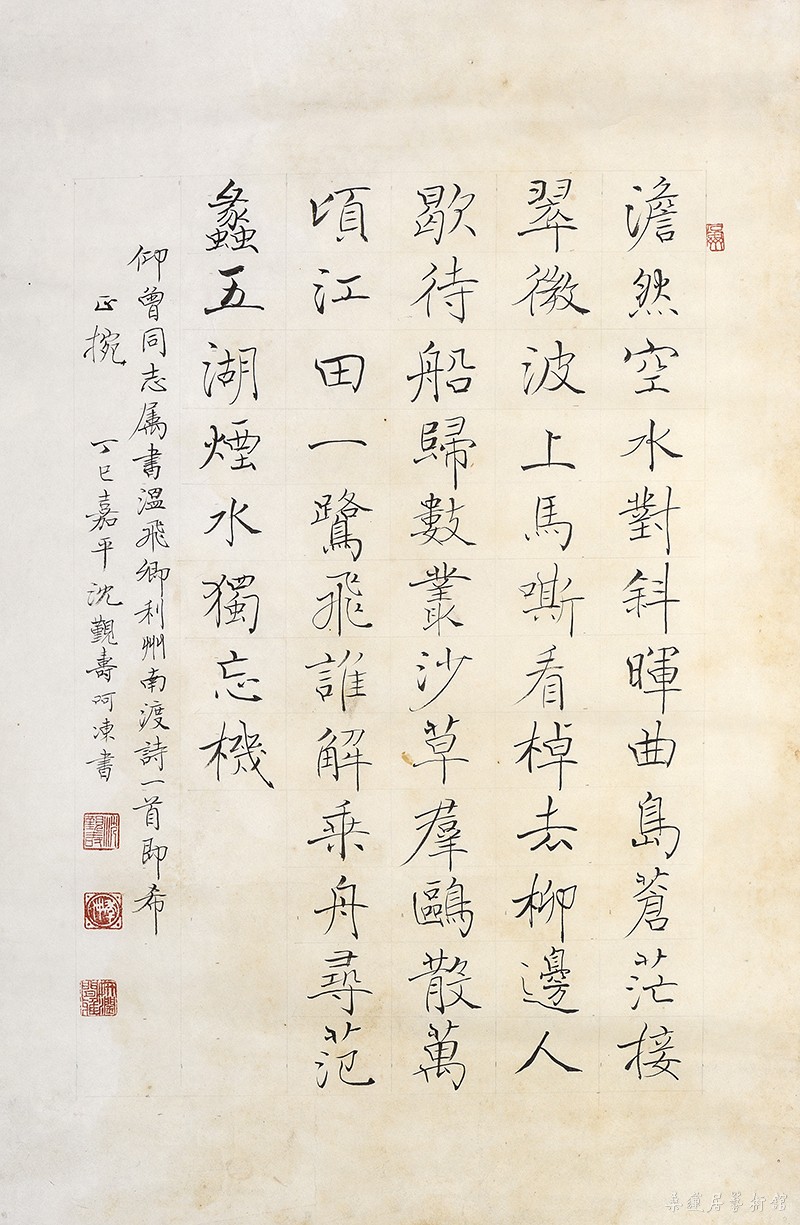 澹然空水對斜暉曲島蒼茫接
翠微波上馬嘶看棹去柳邊人
歇待船歸數叢沙草羣鷗散萬
頃江田一鷺飛誰解乘舟尋范
蠡五湖煙水獨忘機
仰曾同志属書温飛卿利州南渡詩一首即希
正捥 丁巳嘉平沈觀壽呵凍書
桑蓮居藝術館